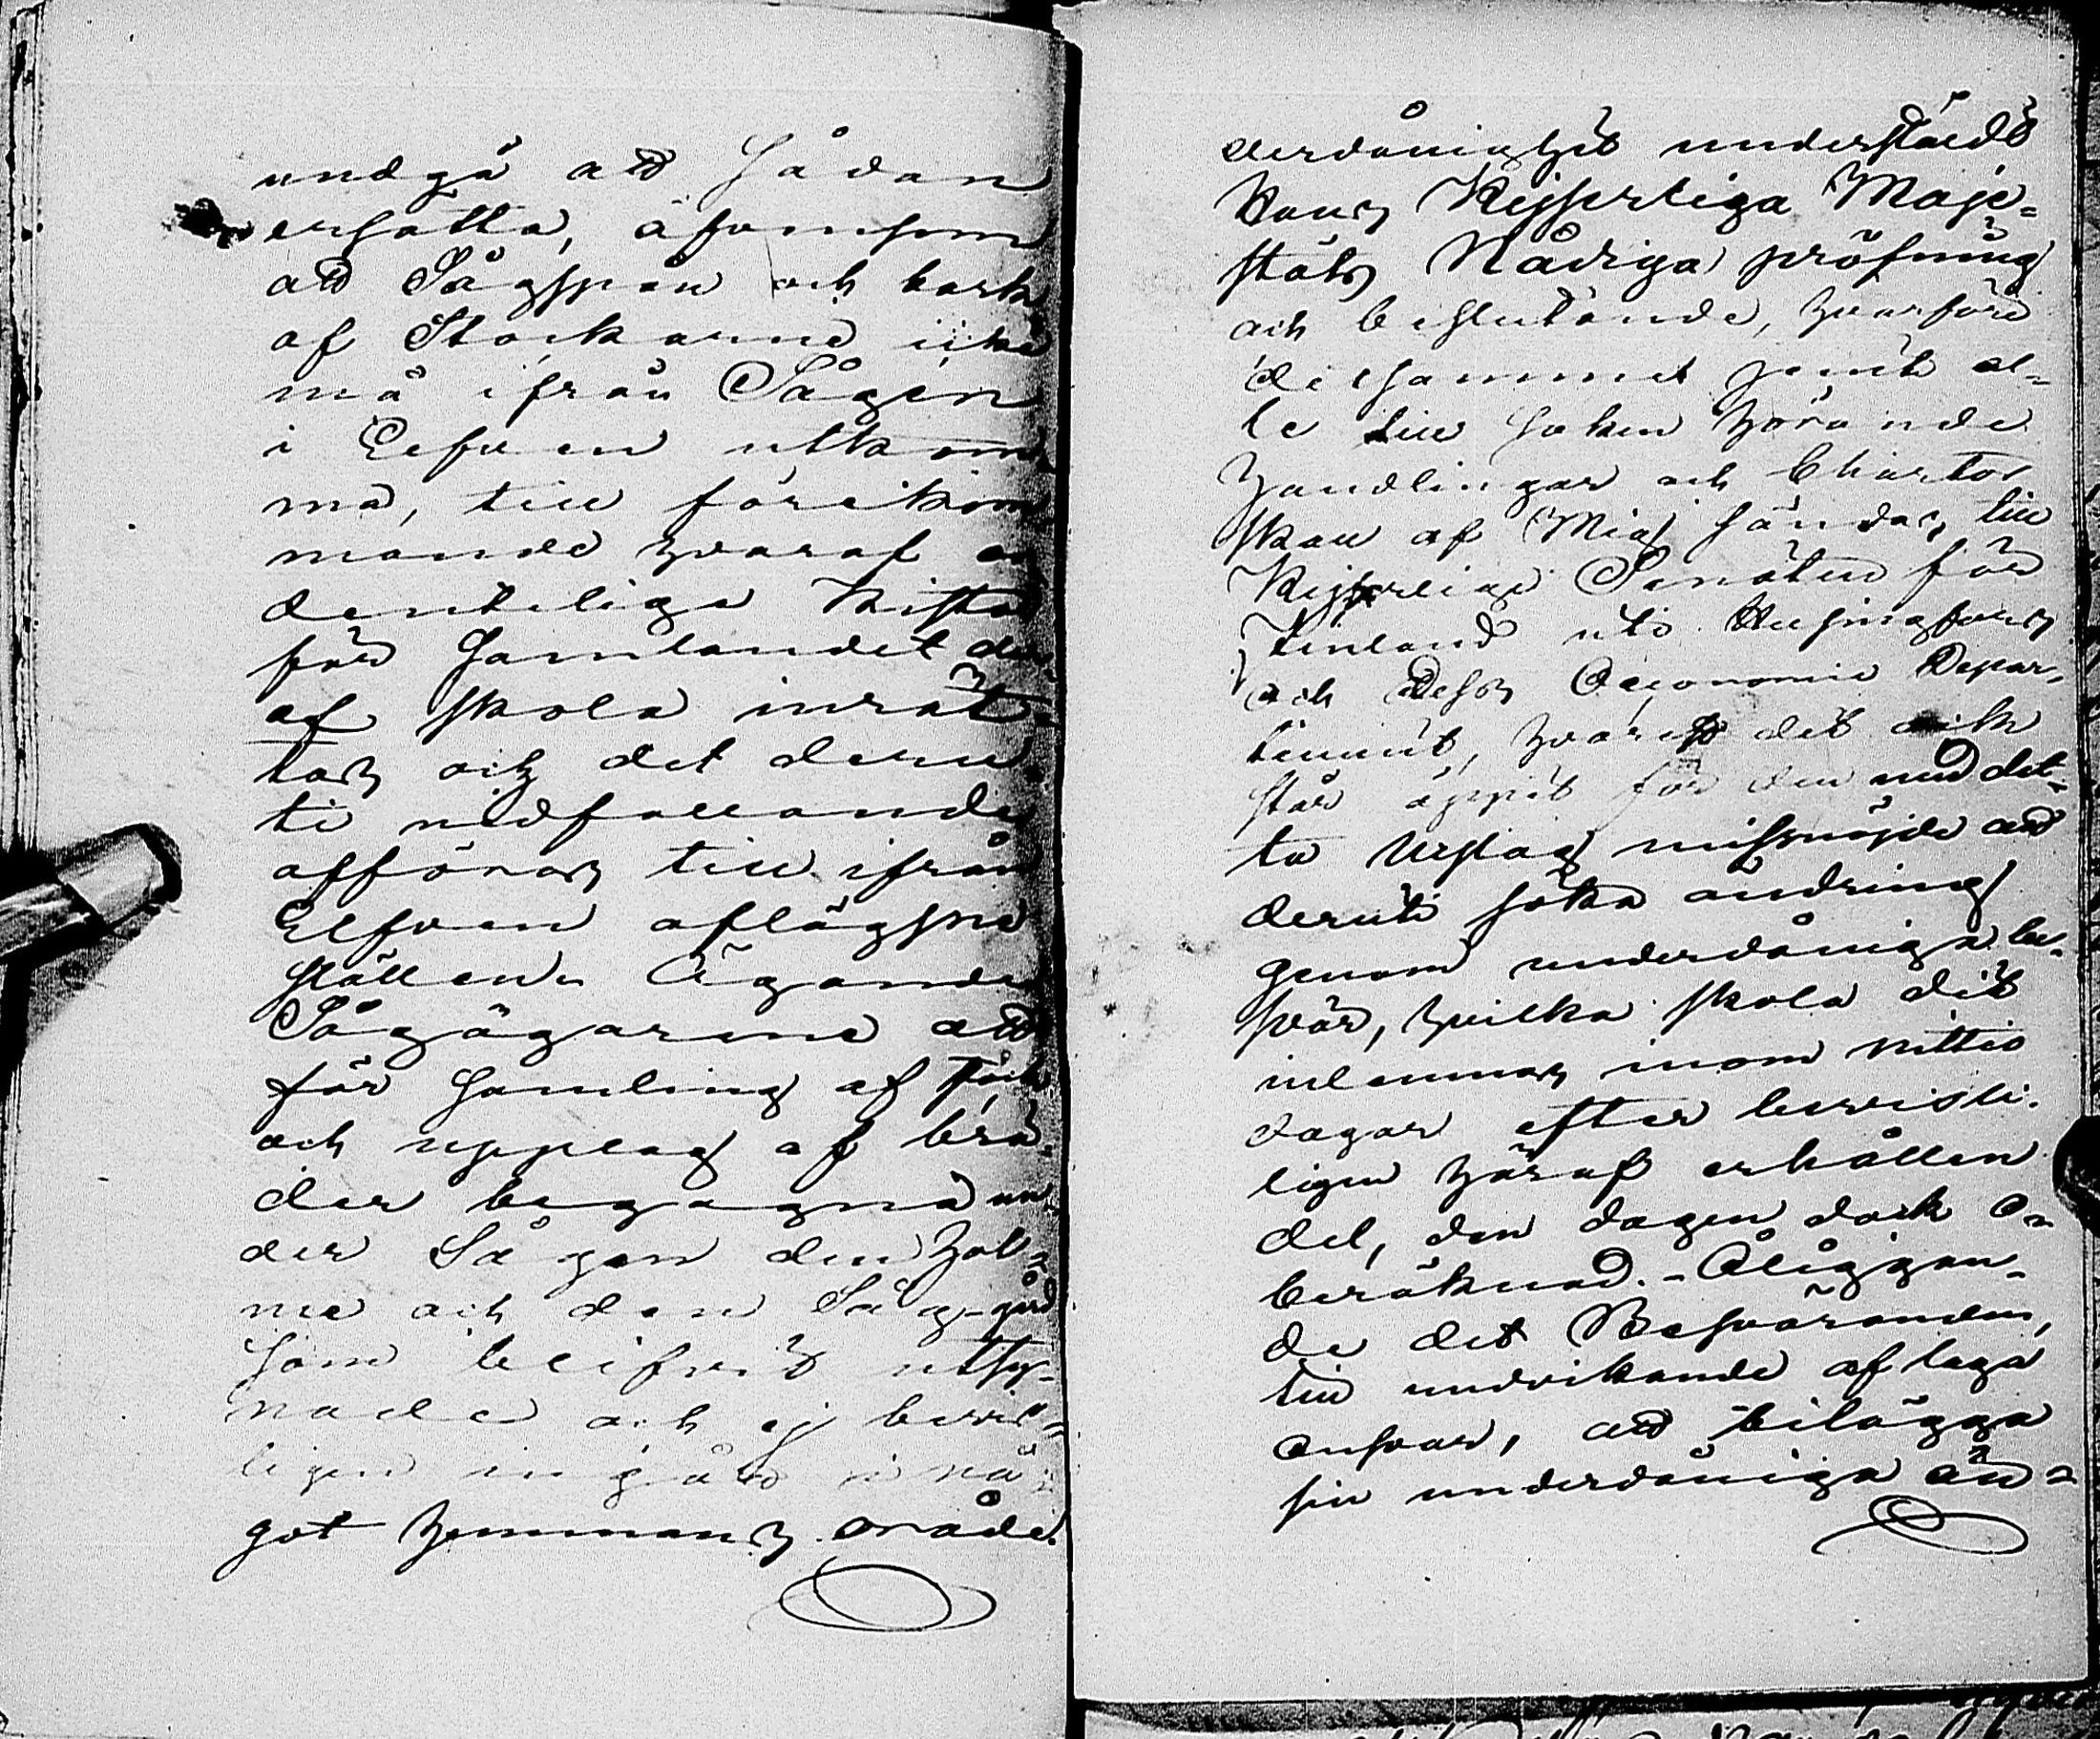 undgå att sådan
ersätta, äfvensom
att Sågspån och bark
af Stockarne icke
må ifrån Sågen
i Eefven utkom-
ma, till förekom
mande hvaraf or
denteliga Kistor
för samlandet der-
af skola inrät-
tas och det deru-
ti nedfallande
afföras till ifrån
Elfven aflägsne
ställen. Ägande
Sågägarene att
för samling af Stock
och upplag af brä-
der begagna un-
der Sågen den hol-
me och den Såg-gård
som blifvit utsy-
nade och ej bevis-
ligen ingår i nå-
got hemmans område.
derdånighet underställt
Hans Kejserliga Maje-
stäts Nådiga pröfning
och beslutande, hvarföre
detsamma jemte al-
le till saken hörande
handlingar och Chartor
skall af Mig sändas till
Kejserliga Senaten för
Finland uti Helsingfors
och Dess Oeconomie Depar-
tement, hvarest det ock
står öppet för den med det-
ta Utslag missnöjde att
deruti söka ändring
genom underdåniga be-
svär, hvilka skola dit
inlemnas inom nittio
dagar efter bevisli-
ligen häraf erhållen
del, den dagen dock o-
beräknad. - Åliggan-
de det Besväranden,
till undvikande af laga
ansvar, att bilägga
sin underdåniga än-